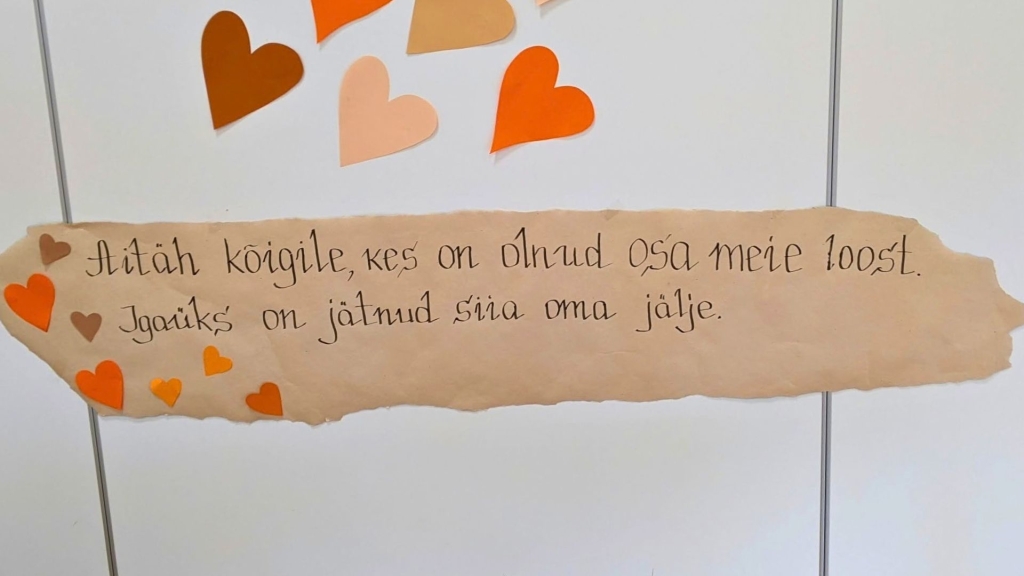 Aitäh kõigile, kes on olnud osa meie loost.
Igaüks on jätnud siia oma jälje.